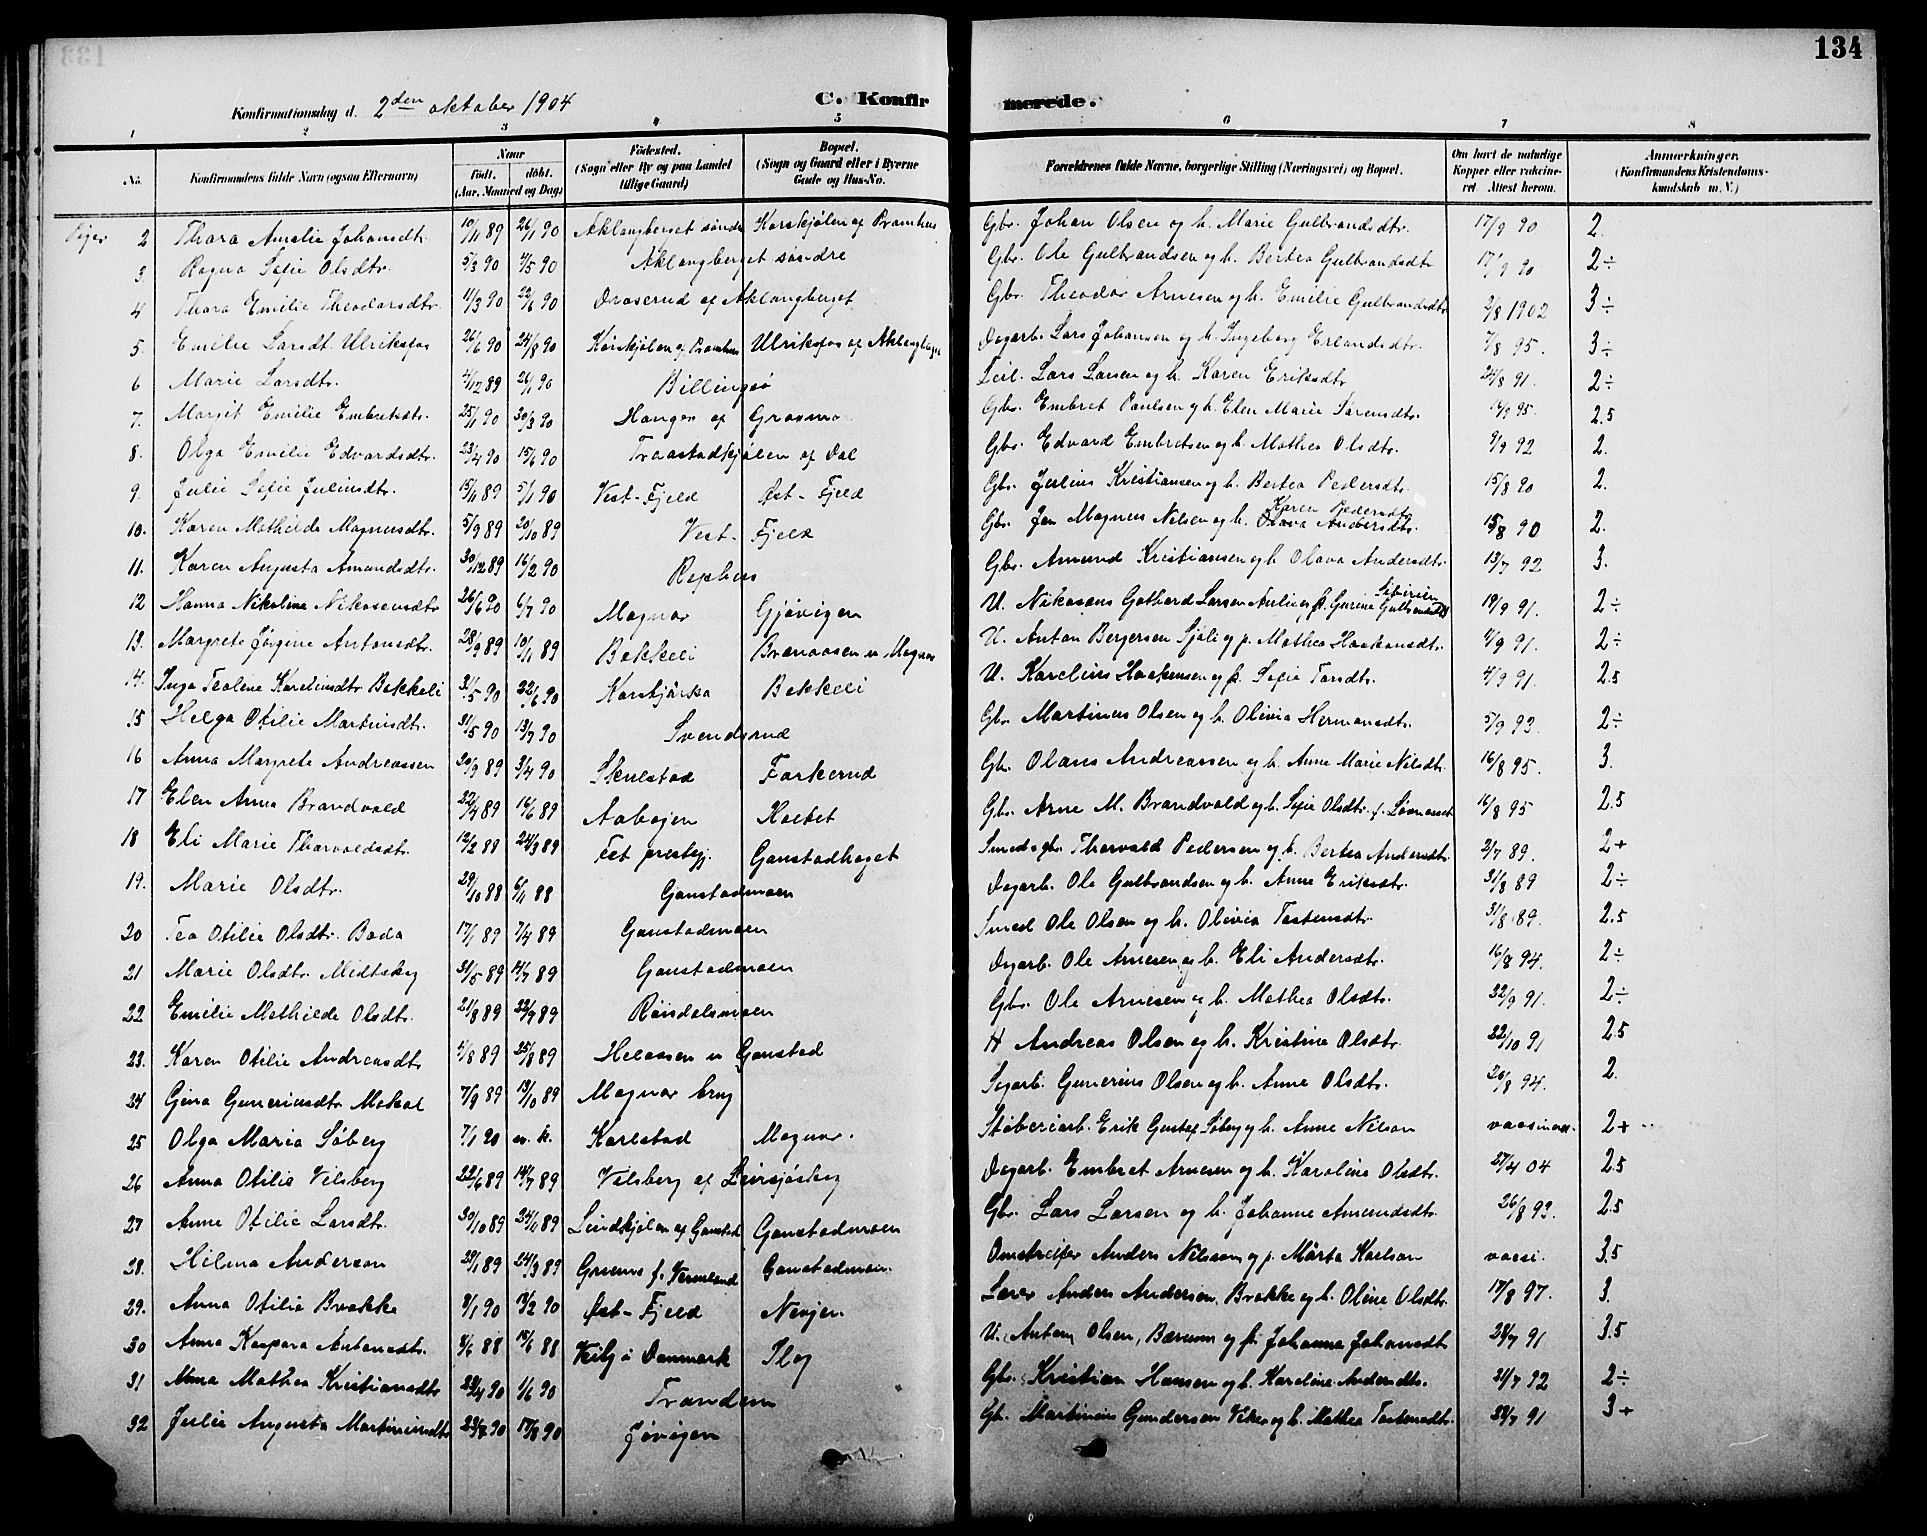 134
Konfirmationsdag d. 2den oktober 1904
C. Konfir
merede.
1 2 3 4 5 6 7 8
No.
Konfirmandens fulde Navn (ogsaa Efternavn)
Naar
Født. døbt.
(Aar, Maaned og Dag)
Fødested.
(Sogn eller By og paa Landet
tillige Gaard)
Bopæl.
(Sogn og Gaard eller i Byerne
Gade og Hus-No.
Forældrenes fulde Navne, borgerlige Stilling (Næringsvei) og Bopæl.
Om havt de naturlige
Kopper eller vakcine-
ret. Attest herom.
Anmærkninger.
(Konfirmandens Kristendoms-
kundskab m. V.)
Piger 2 Thora Amalie Johansdtr. 10/11 89 26/1 90 Aklangberget søndre Korskjølen af Pramhus Gbr. Johan Olsen og h. Marie Gulbrandsdtr. 17/9 90 2.
3. Ragna Sofie Olsdtr. 5/3 90 4/5 90 Aklangberget søndre Gbr. Ole Gulbrandsen og h. Bertea Gulbrandsdtr 17/9 90 2÷
4 Thora Emilie Theodorsdtr. 11/3 90 22/6 90 Draserud af Aklangberget. Gbr. Theodor Arnesen og h. Emilie Gulbrandsdtr 2/8 1902 3÷
5. Emilie Larsdt. Ulriksfos 26/6 90 24/8 90 Korskjølen af Pramhus Ulriksfos af Aklangberget Dagarb. Lars Johansen og h. Ingeborg Erlandsdtr. 7/8 95. 3÷
6 Marie Larsdtr. 4/12 89 26/1 90 Billingsø Leil. Lars Larsen og h. Karen Eriksdtr 24/8 91. 2÷
7. Margit Emilie Embretsdtr. 25/1 90 30/3 90 Hanges af Grasmo Gbr. Embret Paulsen og h. Elen Marie Sørensdtr. 14/9 95. 2.5
8. Olga Emilie Edvardsdtr. 23/4 90 15/6 90 Traastadkjølen af Dal Gbr. Edvard Embretsen og h. Mathea Olsdtr. 9/9 92 2.
9. Julie Sofie Juliusdtr. 15/11 89 5/1 90 Vest-Fjeld Øst-Fjeld Gbr. Julius Kristiansen og h. Bertea Pedersdtr. 15/8 90 2.
10. Karen Mathilde Magnusdtr. 5/9 89 20/10 89 Vest-Fjeld Gbr. Jon Magnus Nilsen og h. Olava Andersdtr. Karen Pedersdtr 15/8 90 2.
11. Karen Augusta Amundsdtr. 30/12 89 16/2 90 Rephus Gbr. Amund Kristiansen og h. Olava Andersdtr. 13/7 92 3.
12 Hanna Nikoline Nikosensdtr 26/6 90 6/7 90 Magnor Gjøvigen U. Nikosans Gothard Larsen og p. Gurine Gulbrandsdtr 19/9 91. 2÷
13. Margrete Jørgine Antonsdtr. 28/9 89 10/11 89 Bekkeli Brænaasen u. Magnor U. Anton Bergersen Sjøli og p. Mathea Haakonsdtr. 4/9 91. 2÷
14. Inga Teoline Karelinsdtr Bekkeli 31/5 90 22/6 90 Korskjærka Bekkeli U. Karelius Haakensen og p. Sofie Torsdtr. 4/9 91. 2.5
15 Helga Otilie Martinsdtr. 31/5 90 13/7 90 Svendsrud Gbr Martinus Olsen og h. Olivia Hermansdtr. 5/9 93. 2÷
16 Anna Margrete Andreassen 30/9 89 3/4 90 Skulstad Farkerud Gbr. Olaus Andreassen og h. Anne Marie Nilsdtr. 16/8 95. 3.
17 Elen Anna Brandvold 22/4 89 16/6 89 Aabogen Holtet Gbr. Arne M. Brandvold og h. Sofie Olsdtr. 16/8 95 2.5
18 Eli Marie Thorvaldsdtr. 12/2 89 24/3 89 Fet prestegj. Ganstadhaget Smedsgbr. Thorvald Pedersen og h. Bertea Andersdtr. 2/7 89. 2+
19. Marie Olsdtr. 29/10 88 6/11 88 Ganstadmoen Dagarb. Ole Gulbrandsen og h. Anne Eriksdtr. 31/8 89 2÷
20 Tea Otilie Olsdtr. Boda 17/1 89 7/4 89 Ganstadmoen Smed Ole Olsen og h. Olivia Tostensdtr. 31/8 89. 2.5
21 Marie Olsdtr. Midtskog 31/5 89 14/7 89 Ganstadmoen Dagarb. Ole Arnesen og h. Eli Andersdtr. 16/8 94. 2÷
22 Emilie Mathilde Olsdtr. 21/8 89 22/9 89 Røisdalsmoen Gbr. Ole Arnesen og h. Mathea Olsdtr. 22/9 91. 2÷
23. Karen Otilie Andreasdtr 4/8 89 25/8 89 Helaasen u. Ganstad H Andreas Olsen og h. Kristine Olsdtr. 22/10 91 2.5
24 Gina Guneriusdtr. Mokal 7/9 89 13/10 89 Magnor brug Sagarb. Gunerius Olsen og h. Anne Olsdtr. 20/8 94. 2.
25 Olga Maria Søberg 7/1 90 Karlstad Magnor. Støberiarb. Erik Gustaf Søberg og h. Anne Nilson 2+
26 Anna Otilie Velsberg 22/6 89 14/7 89 Velsberg af Leirsjøsberg Dagarb. Embret Arnesen og h. Karoline Olsdtr. 27/4 04 2.5
27 Anne Otilie Larsdtr. 30/10 89 24/11 89 Lindkjølen af Ganstad Ganstadmoen Gbr. Lars Larsen og h. Johanne Amundsdtr. 26/8 93. 2.5
28. Hilma Anderson 29/1 89 24/3 89 Grums f. Vermland Ganstadmoen. Omstreifer Anders Nilsson og p. Märta Karlson vacsi. 3.5
29. Anna Otilie Brække 8/1 90 13/2 90 Øst-Fjeld Nevjen Lærer Anders Andersen Brække og h. Oline Olsdtr. 17/8 97. 3.
30 Anna Kaspara Antonsdtr. 8/6 88 15/6 88 Veibj i Danmark Slog U. Anton Olsen, Bærum og p. Johanna Johansdtr 28/7 91 3.5
31 Alma Mathea Kristiansdtr 22/4 90 1/6 90 Tranden Gbr. Kristian Hansen og h. Karoline Andersdtr. 21/7 92 2÷
32 Julie Augusta Martiniusdtr 23/7 90 17/8 90 Gjøvigen Gb. Martinius Gundersen Viker og h. Mathea Tostensdtr. 28/7 91 3+